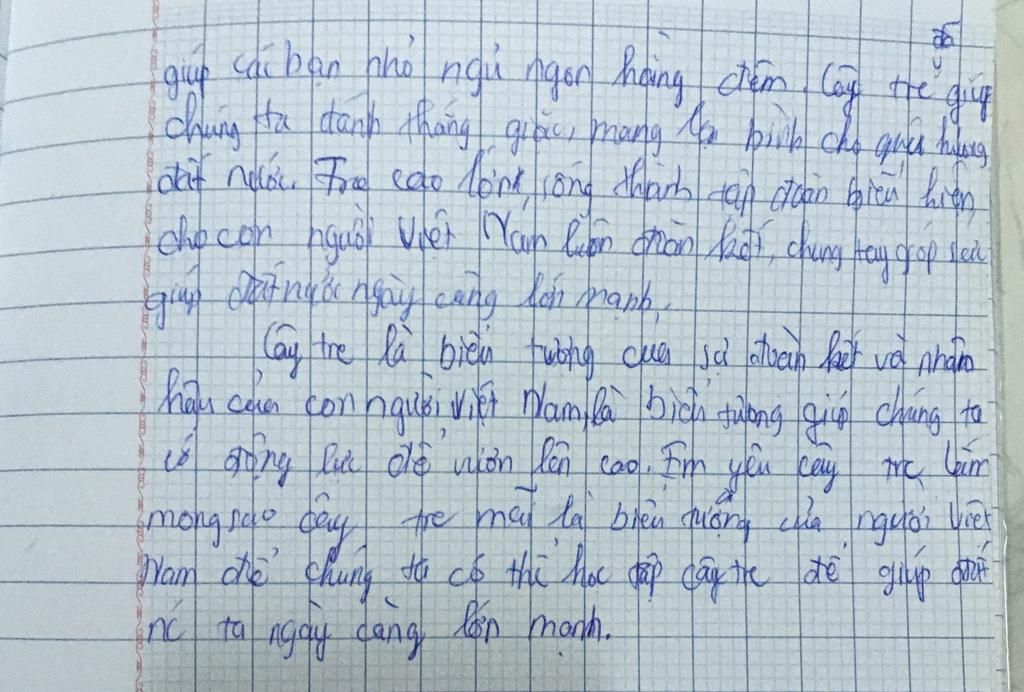 đã
giúp các bạn nhỏ ngủ ngon hằng đêm. Cây tre giúp
chúng ta đánh thắng giặc, mang lại bình cho quê hương
đất nước. Tre cao lớn, sống thành tập đoàn biểu hiện
cho con người Việt Nam luôn đoàn kết, chung tay góp sức
giúp đất nước ngày càng lớn mạnh.
Cây tre là biểu tượng của sự đoàn kết và nhân
hậu của con người Việt Nam, là biểu tượng giúp chúng ta
có động lực để vươn lên cao. Em yêu cây tre lắm
mong sao cây tre mãi là biểu tượng của người Việt
Nam để chúng ta có thể học tập cây tre để giúp đất
nc ta ngày càng lớn mạnh.